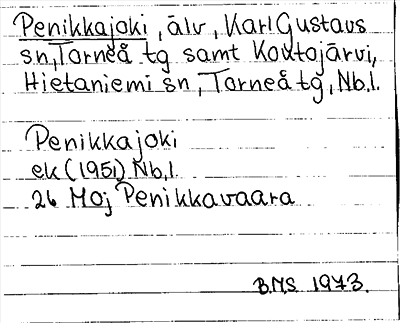 Penikkajoki, älv, Karl Gustavs
sn, Torneå tg samt Koutojärvi,
Hietaniemi sn, Torneå tg, Nb.l.
Penikkajoki
ek (1951) Nb.l.
26 Moj Penikkavaara
B.M.S 1973.